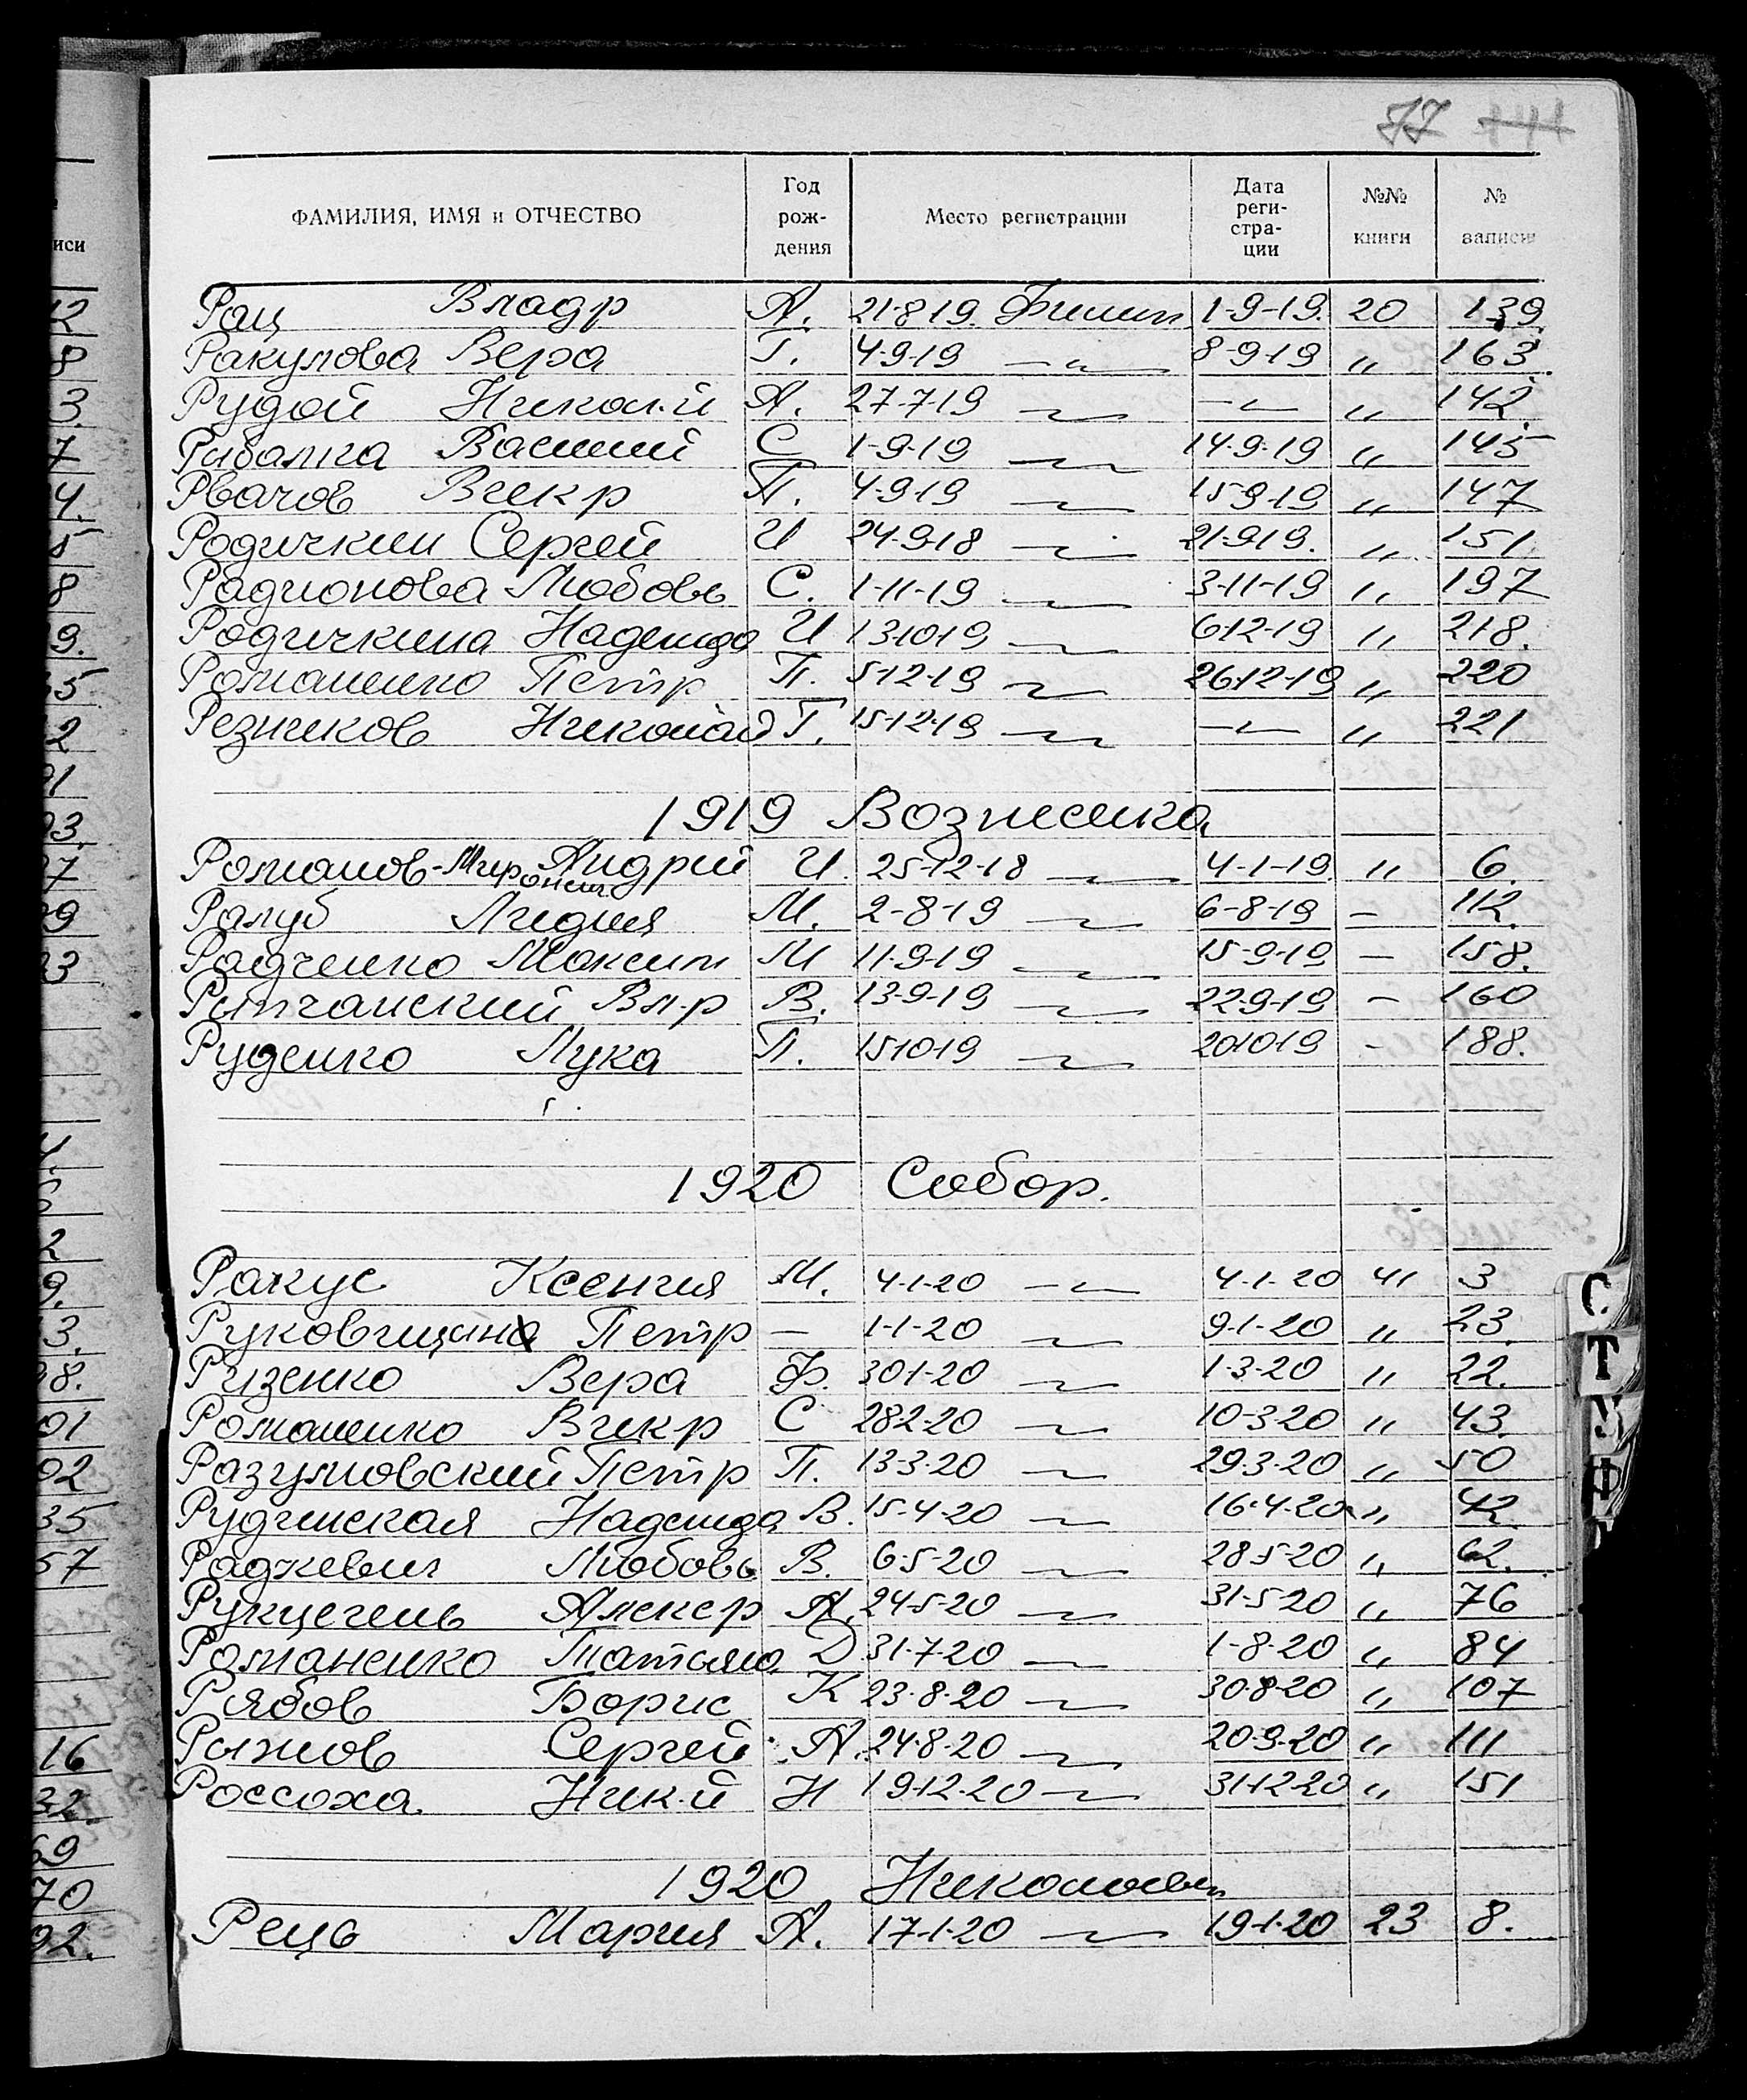 77 141
ФАМИЛИЯ, ИМЯ и ОТЧЕСТВО Год рож- дения Место регистрации Дата реги- стра- ции №№ книги № записи
иси
Рац Владр А. 21-8-19. Филип 1-9-19. 20 139
Ракулова Вера Г. 4-9-19 —〃— 8-9-19 〃 163
Рудой Никол.й А. 27-7-19 —〃— —〃— 〃 142
Рибалка Василий С 1-9-19 —〃— 14-9-19 〃 145
Рвачов Викр П. 4-9-19 —〃— 15-9-19 〃 147
Родичкин Сергей И 24-9-18 —〃— 21-9-19. 〃 151
Радионова Любовь С. 1-11-19 —〃— 3-11-19 〃 197
Родичкина Надежда И 13-10-19 —〃— 6-12-19 〃 218.
Романенко Петр П. 5-12-19 —〃— 26-12-19 〃 220
Резников Николай Г. 15-12-19 —〃— —〃— 〃 221
1919 Вознесенка
Романов-Миронен Андрий И. 25-12-18 —〃— 4-1-19. 〃 6.
Ралуб Лидия М. 2-8-19 —〃— 6-8-19 — 112.
Радченко Максим М 11-9-19 —〃— 15-9-19 — 158.
Рытчанский Вл-р В. 13-9-19 —〃— 22-9-19 — 160
Руденко Лука П. 15-10-19 —〃— 20-10-19 - 188.
1920 Собор.
Ракус Ксения М. 4-1-20 —〃— 4-1-20 41 3
Руковицина Петр — 1-1-20 —〃— 9-1-20 〃 23.
Ризенко Вера Ф. 30-1-20 —〃— 1-3-20 〃 22.
Романенко Викр С 28-2-20 —〃— 10-3-20 〃 43.
Разумовский Петр П. 13-3-20 —〃— 29-3-20 〃 50
Рудинская Надежда В. 15-4-20 —〃— 16-4-20 〃 42
Радкевич Любовь В. 6-5-20 —〃— 28-5-20 〃 62.
Рукцегень Алекср А. 24-5-20 —〃— 31-5-20 〃 76
Романенко Татьяна Д 31-7-20 —〃— 1-8-20 〃 84
Рябов Борис К 23-8-20 —〃— 30-8-20 〃 107
Рыжов Сергей А. 24-8-20 —〃— 20-9-20 〃 111
Россоха Ник.й И 19-12-20 —〃— 31-12-20 〃 151
1920 Николаевск
Рець Мария А. 17-1-20 —〃— 19-1-20 23 8.
С
Т
У
Ф